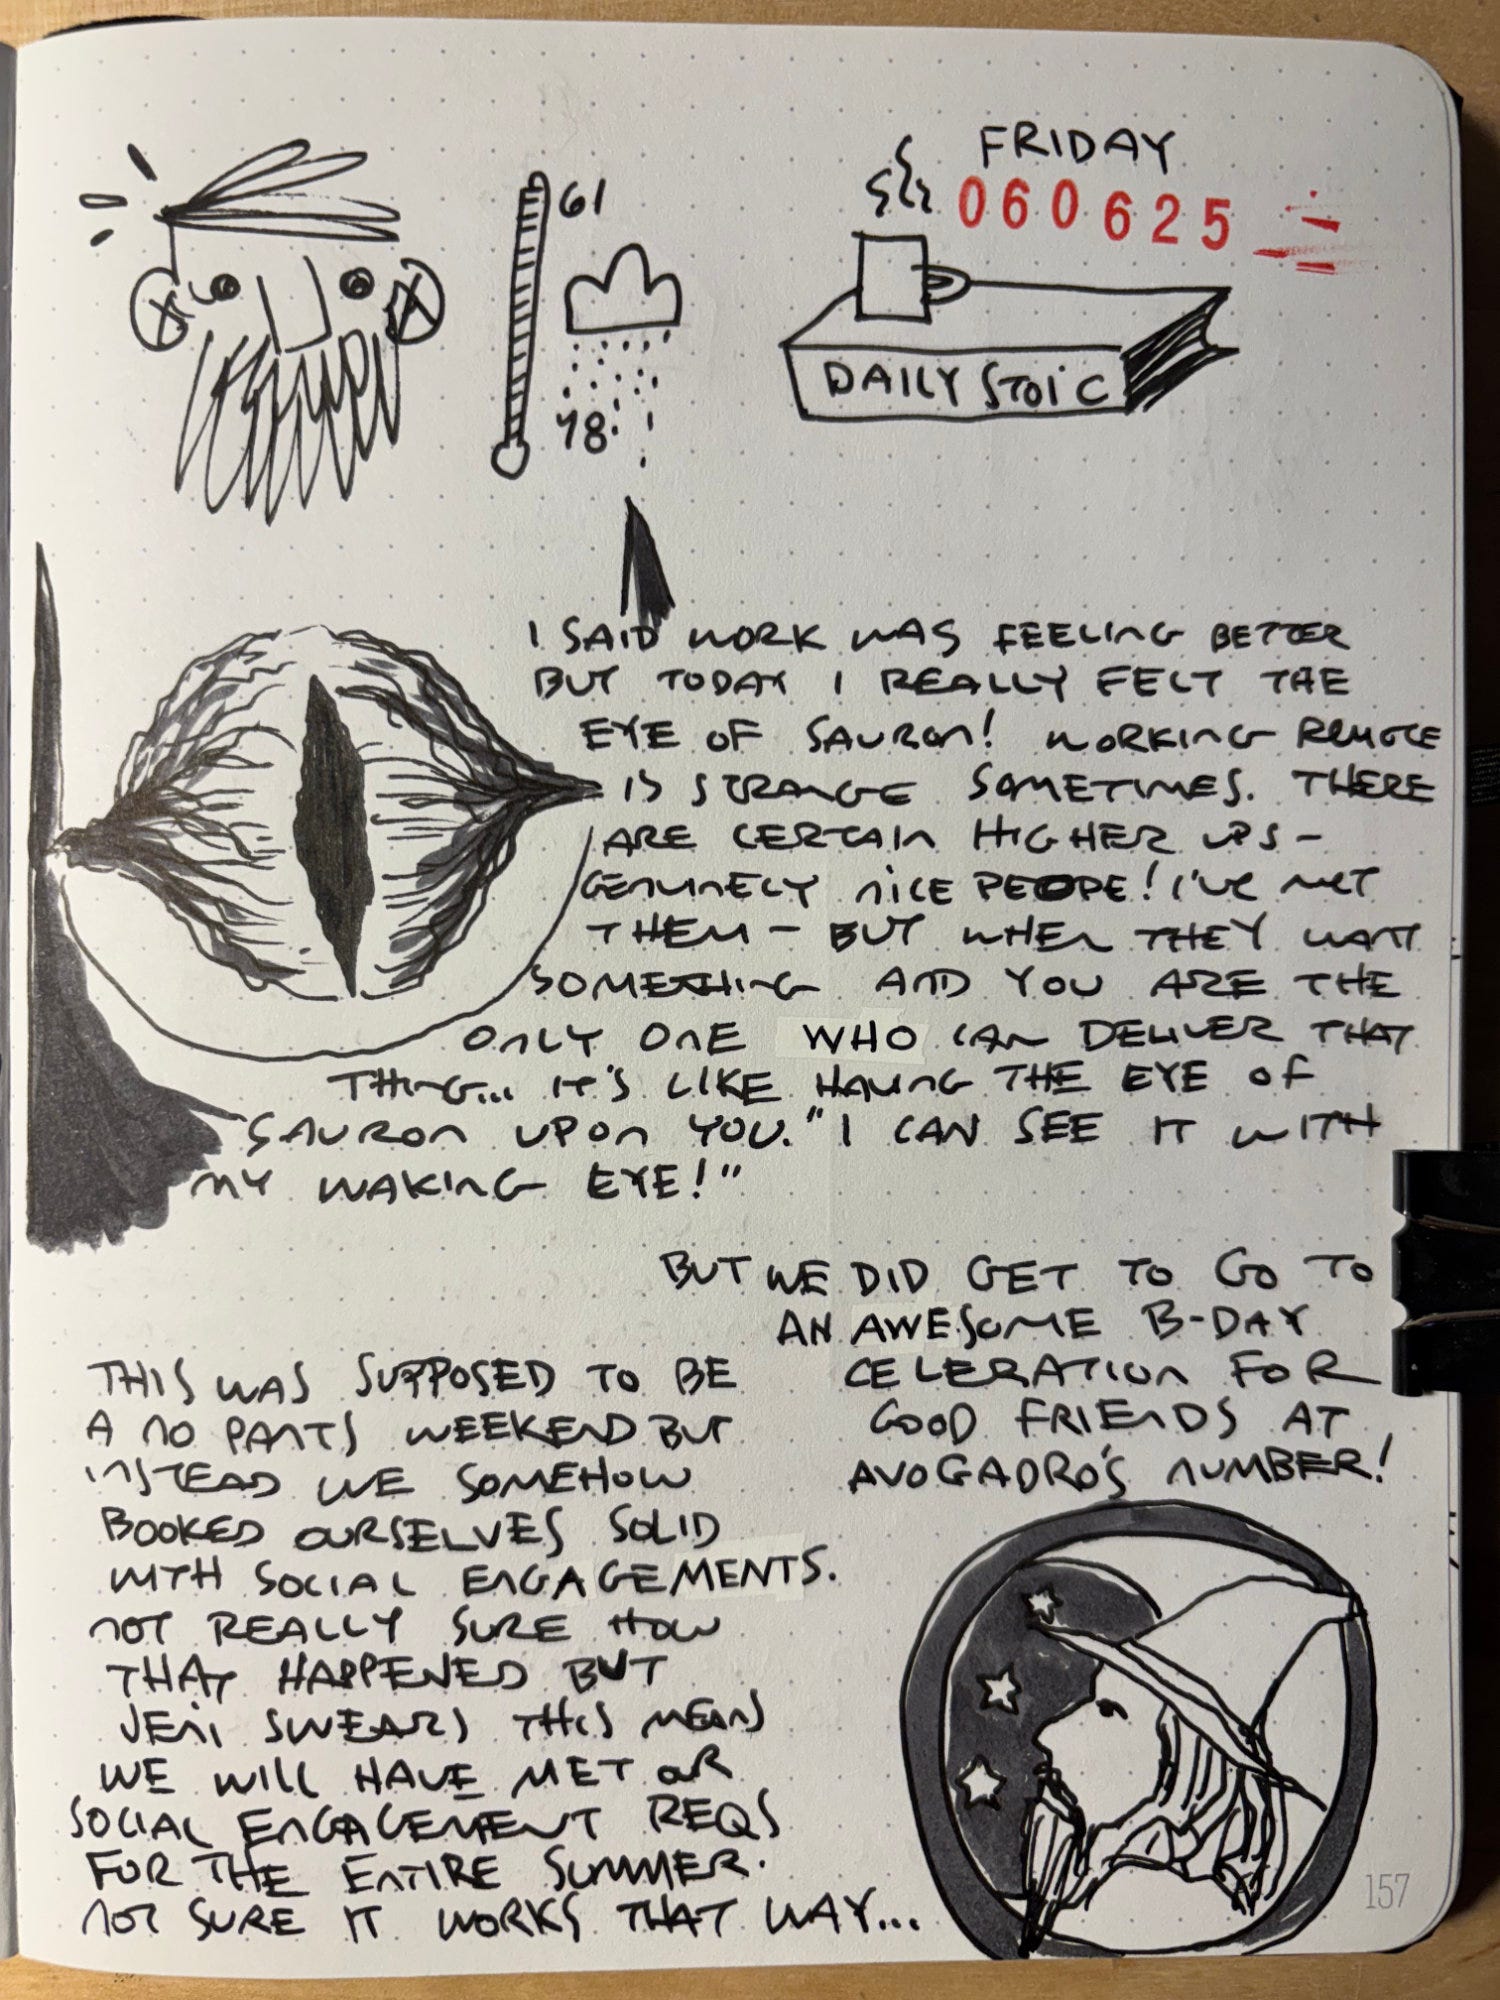 FRIDAY
060625
61
48
DAILY STOIC
I SAID WORK WAS FEELING BETTER
BUT TODAY I REALLY FELT THE
EYE OF SAURON! WORKING REMOTE
IS STRANGE SOMETIMES. THERE
ARE CERTAIN HIGHER UPS -
GENUINELY NICE PEOPLE! I'VE MET
THEM - BUT WHEN THEY WANT
SOMETHING AND YOU ARE THE
ONLY ONE WHO CAN DELIVER THAT
THING... IT'S LIKE HAVING THE EYE OF
SAURON UPON YOU. "I CAN SEE IT WITH
MY WAKING EYE!"
BUT WE DID GET TO GO TO
AN AWESOME B-DAY
CELEBRATION FOR
GOOD FRIENDS AT
AVOGADRO'S NUMBER!
THIS WAS SUPPOSED TO BE
A NO PANTS WEEKEND BUT
INSTEAD WE SOMEHOW
BOOKED OURSELVES SOLID
WITH SOCIAL ENGAGEMENTS.
NOT REALLY SURE HOW
THAT HAPPENED BUT
JENI SWEARS THIS MEANS
WE WILL HAVE MET OUR
SOCIAL ENGAGEMENT REQS
FOR THE ENTIRE SUMMER.
NOT SURE IT WORKS THAT WAY...
157